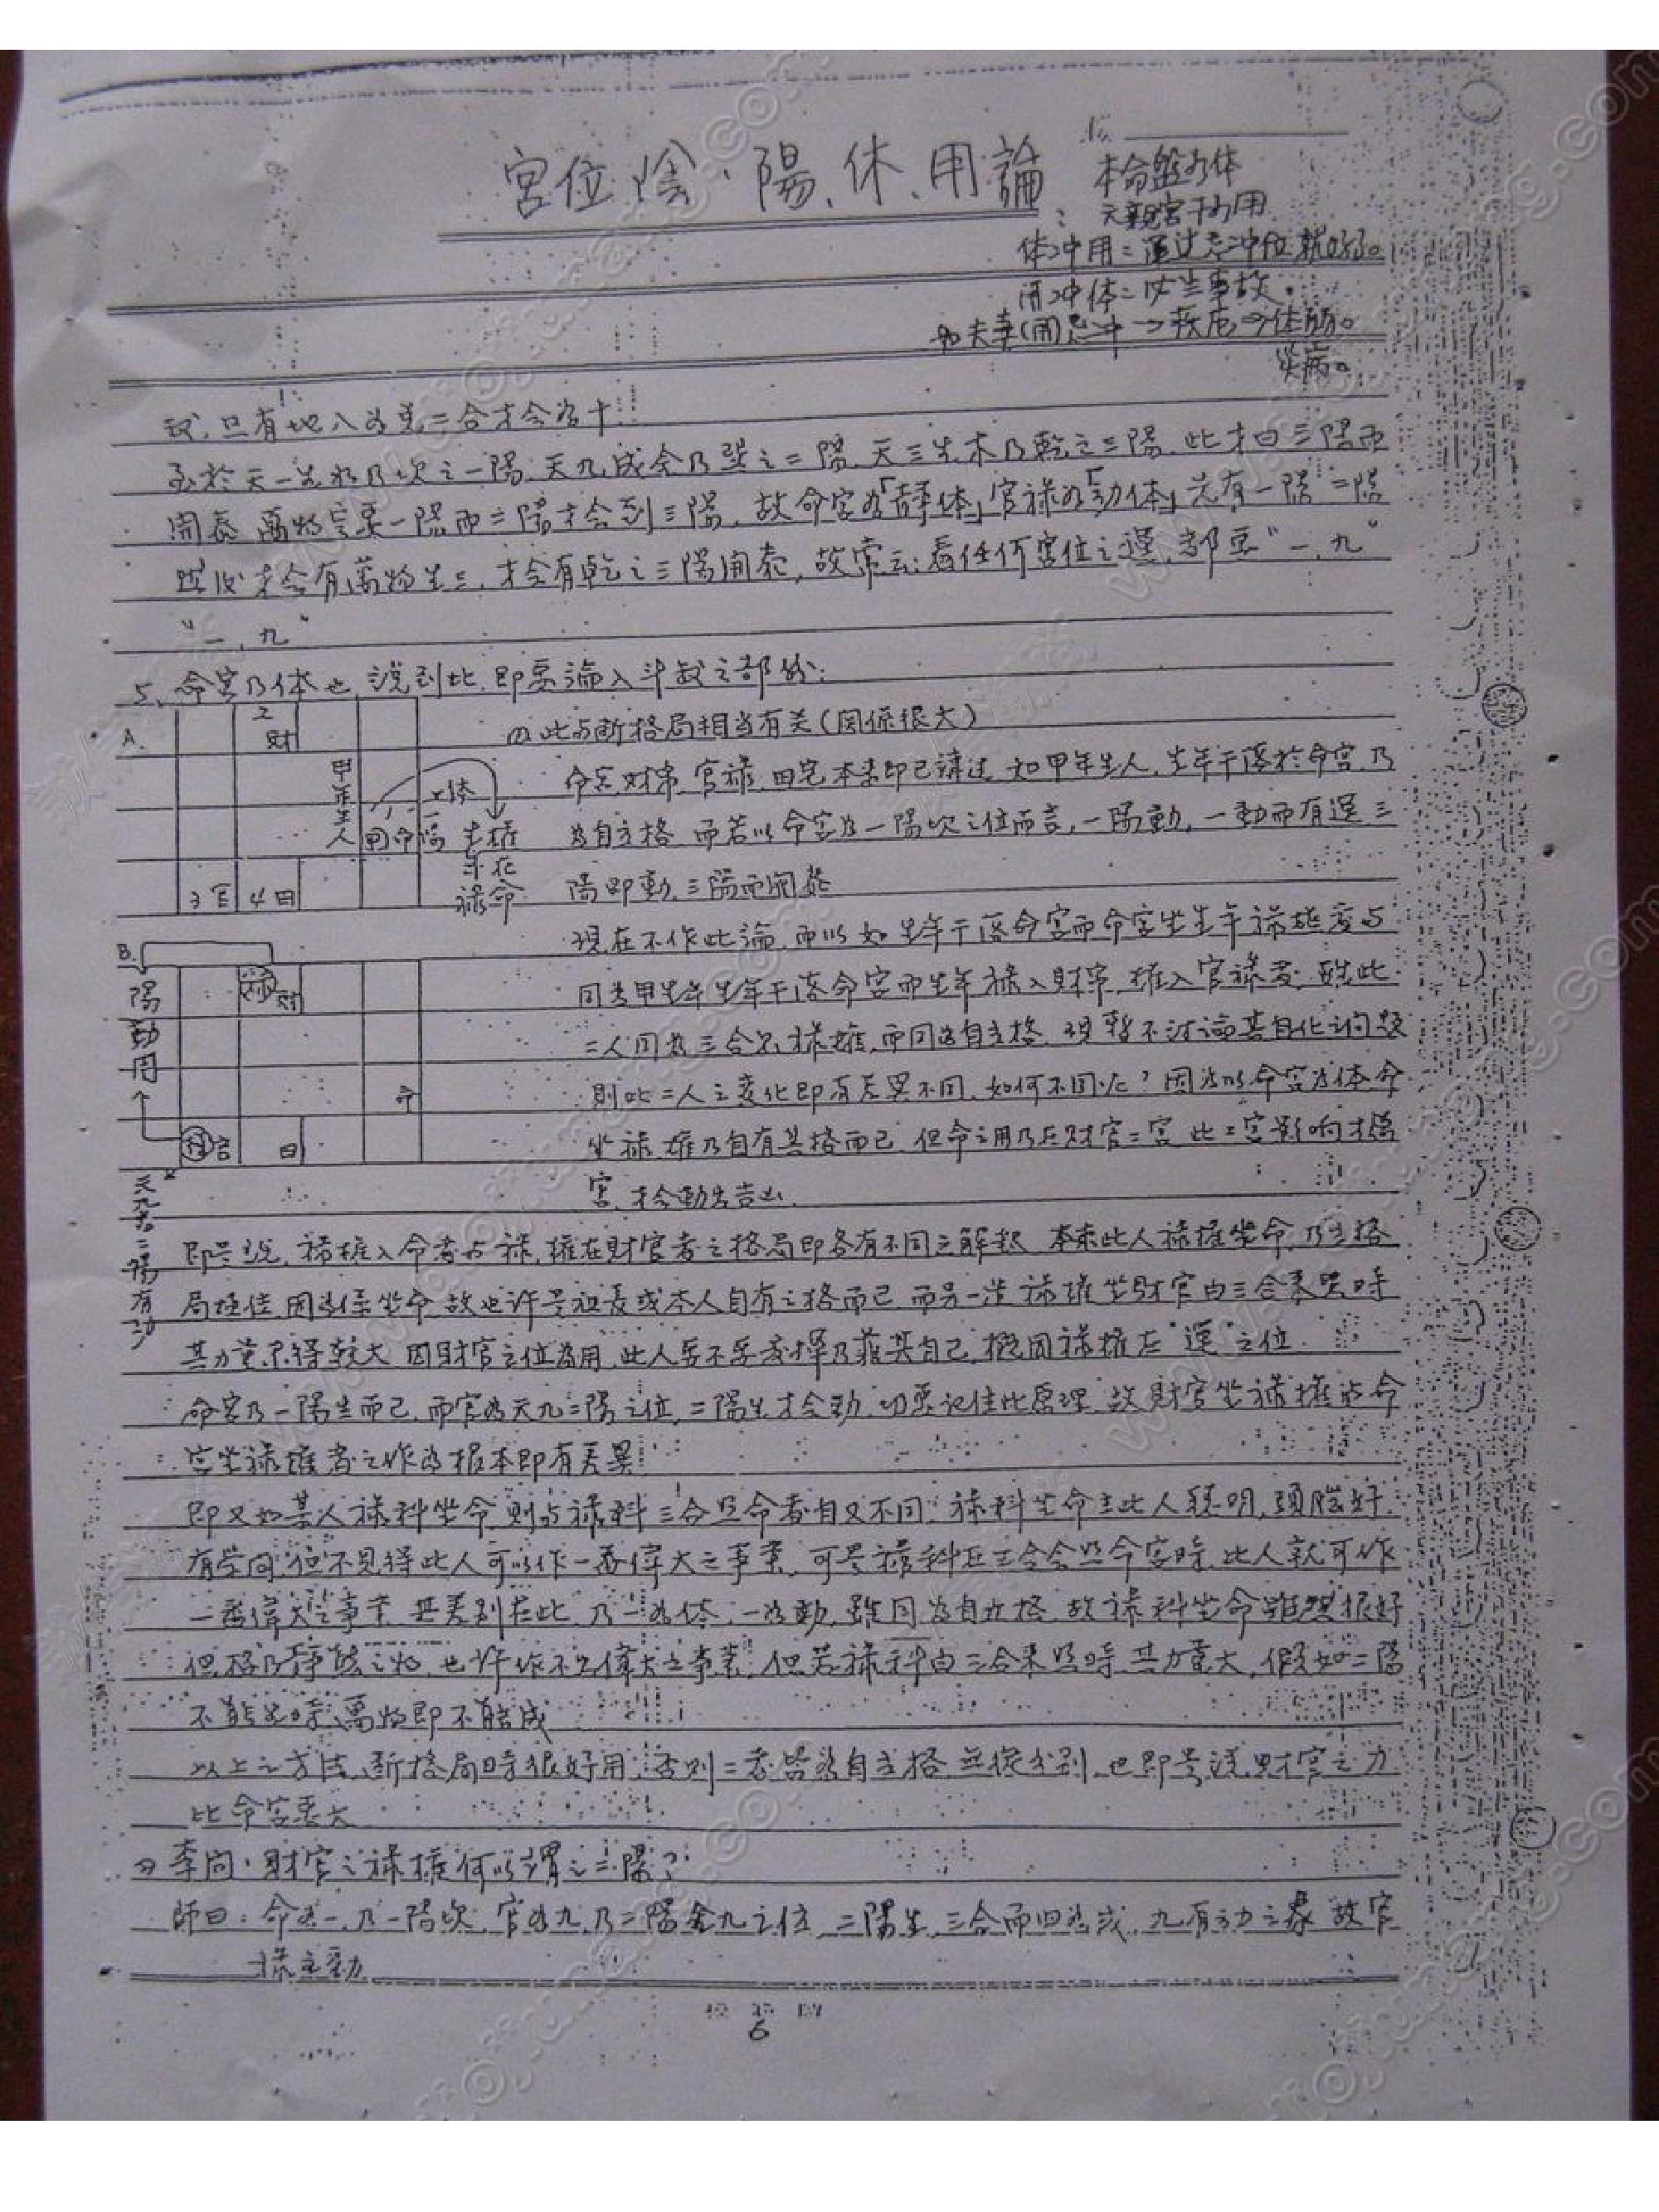 宮位陰、陽、体、用論
本命盤为体
六親宮干为用
体冲用=通过忌冲位就好了。
用冲体=必当事故.
如夫妻(用)忌冲→疾厄→体弱。
災病。
致,只有地八为克二合才会为十
至於天一生水乃坎之一陽,天九成金乃巽之二陽,天三生木乃乾之三陽,此才曰三陽而
開泰,萬物定要一陽而二陽才会到三陽,故命宮为「静体」官禄为「动体」先有一陽二陽
才会有萬物生三,才会有乾之三陽開泰,故常云:看任何宮位之運,都要"一、九"
"一、九"
5、命宮乃体也,說到此,即要論入斗数之部份:
A.
2
財
甲年生人
甲命
一陽
3官
4田
生年禄
權在命
(1)此与断格局相当有关(関係很大)
命宮,財帛,官禄,田宅本来即已講过,如甲年生人,生年干落於命宮乃
为自立格,而若以命宮为一陽坎之位而言,一陽動,一動而有運三
陽即動,三陽而開泰
B.
陽動用
財
命
官
田
天九为二陽有动
現在不作此論,而以如生年干落命宮而命宮坐生年禄權度与
同为甲生年生年干落命宮而生年禄入財帛,權入官禄者,虽此
二人同为三合見禄權,而同为自立格,現暫不討論其自化之问題
則此二人之变化即有差異不同,如何不同呢?因为以命宮为体命
坐禄權乃自有其格而已,但命之用乃在財官二宮,此二宮影响才為
宮,才会動生吉凶.
即是說,禄權入命者与禄,權在財官者之格局即各有不同之解釈,本来此人禄權坐命乃主格
局極佳,因为係坐命故也许是祖産或本人自有之格而已,而另一造禄權坐財官由三合来照時
其力量只得較大,因財官之位为用,此人要不要发揮乃靠其自己,概因禄權在"運"之位
命宮乃一陽生而已,而官为天九二陽之位,二陽生才会動,切要記住此原理,故財官坐禄權与命
宮坐禄權者之作为根本即有差異
即又如某人禄科坐命則与禄科三合照命者自又不同,禄科坐命主此人聪明,頭脑好
有学问,但不見得此人可以作一番偉大之事業,可是禄科在三合会照命宮時,此人就可作
一番偉大之事業,其差別在此,乃一为体,一为動,雖同为自立格,故禄科坐命雖然很好
但格乃静態之物,也许作不出偉大之事業,但若禄科由三合来照時其力量大,假如二陽
不能生時,萬物即不能成
以上之方法,断格局時很好用,否則二者皆为自立格,無從分別,也即是説,財官之力
比命宮要大
(2)李问:財官之禄權何以謂之二陽?
師曰:命为一,乃一陽坎,官为九,乃二陽金九之位,三陽生,三合而归为成,九有动之象,故官
禄主動
6